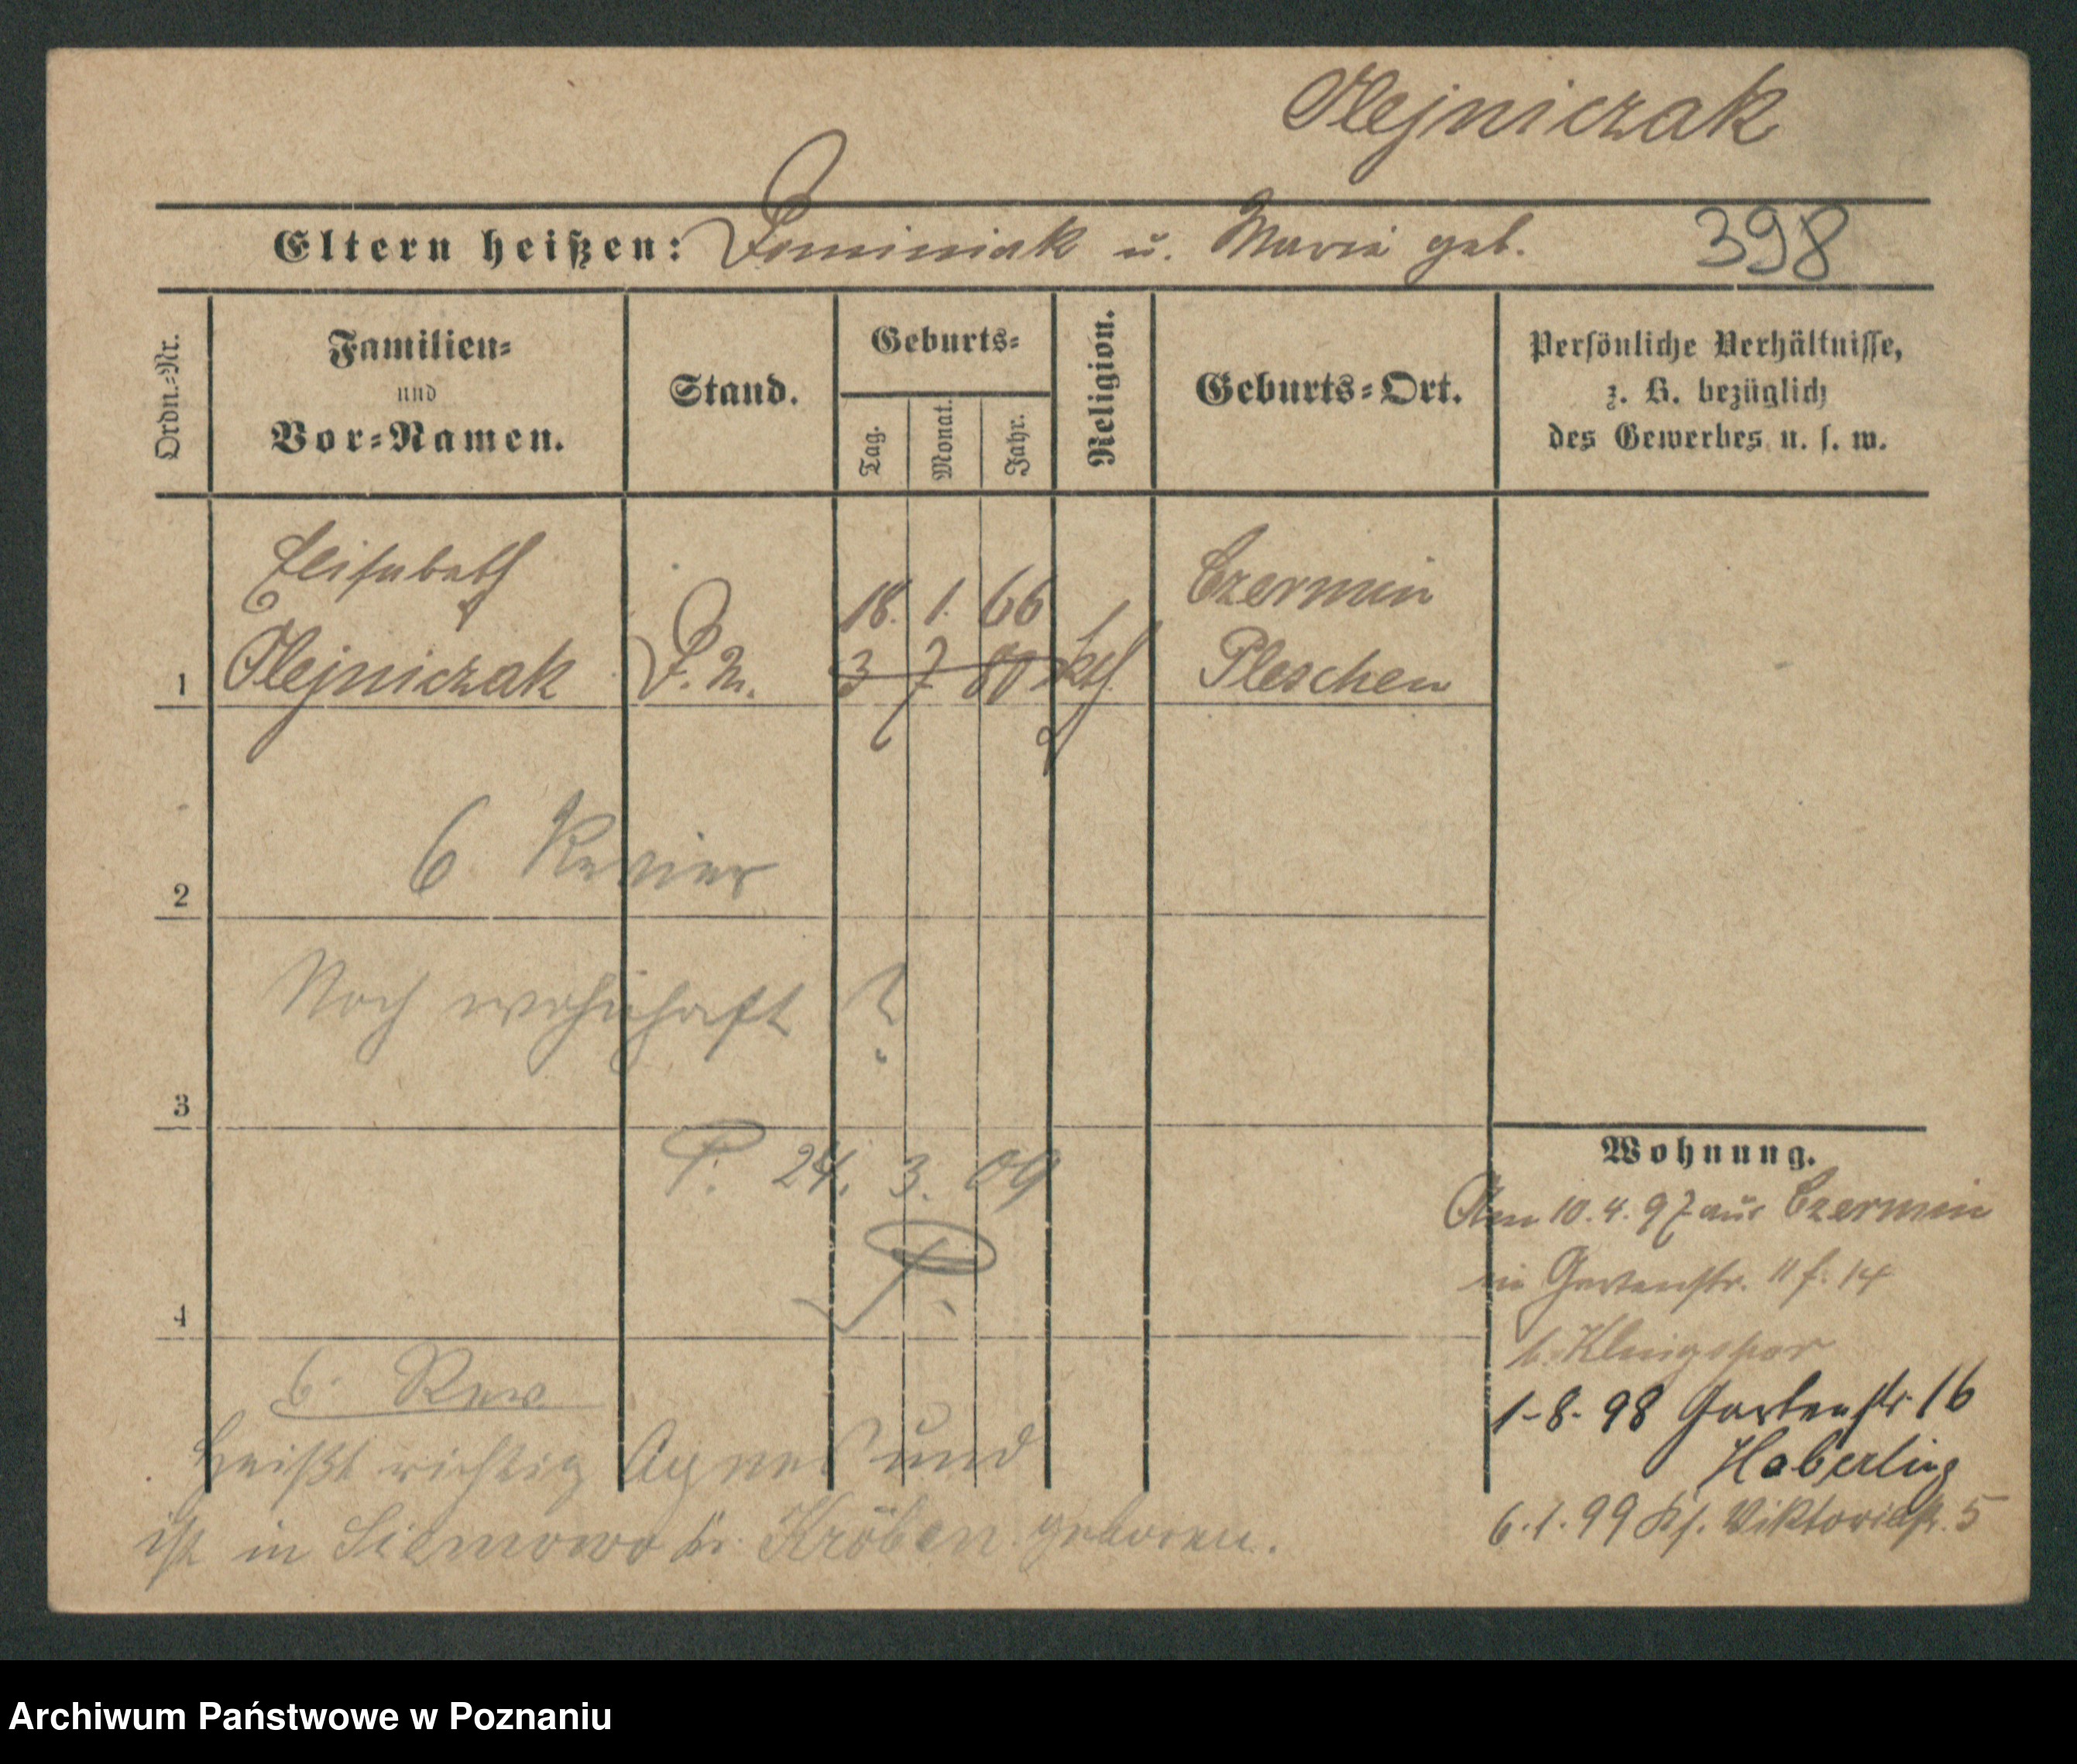 Olejniczak
Eltern heißen: Dominiak u. Maria geb. 398
Ordn.-Nr.
Familien-
und
Vor-Namen.
Stand.
Geburts-
Tag. Monat. Jahr.
Religion.
Geburts-Ort.
Persönliche Verhältnisse,
z. B. bezüglich
des Gewerbes u. s. w.
Elisabeth 18. 1. 66 Czermin
1 Olejniczak D. M. 3 7 80 kth Pleschen
2 6 Revier
3 Noch wohnhaft ?
P. 24. 3. 09
4
Wohnung.
Am 10.4.97 aus Czermin
in Gartenstr. 11 f. 14
b. Klingspor
1-8-98 Gartenstr. 16
Haberling
6.1.99 Viktoriastr. 5
6. Rev
Heißt richtig Agnes und
ist in Siemowo Kr. Kröben geboren.
Archiwum Państwowe w Poznaniu